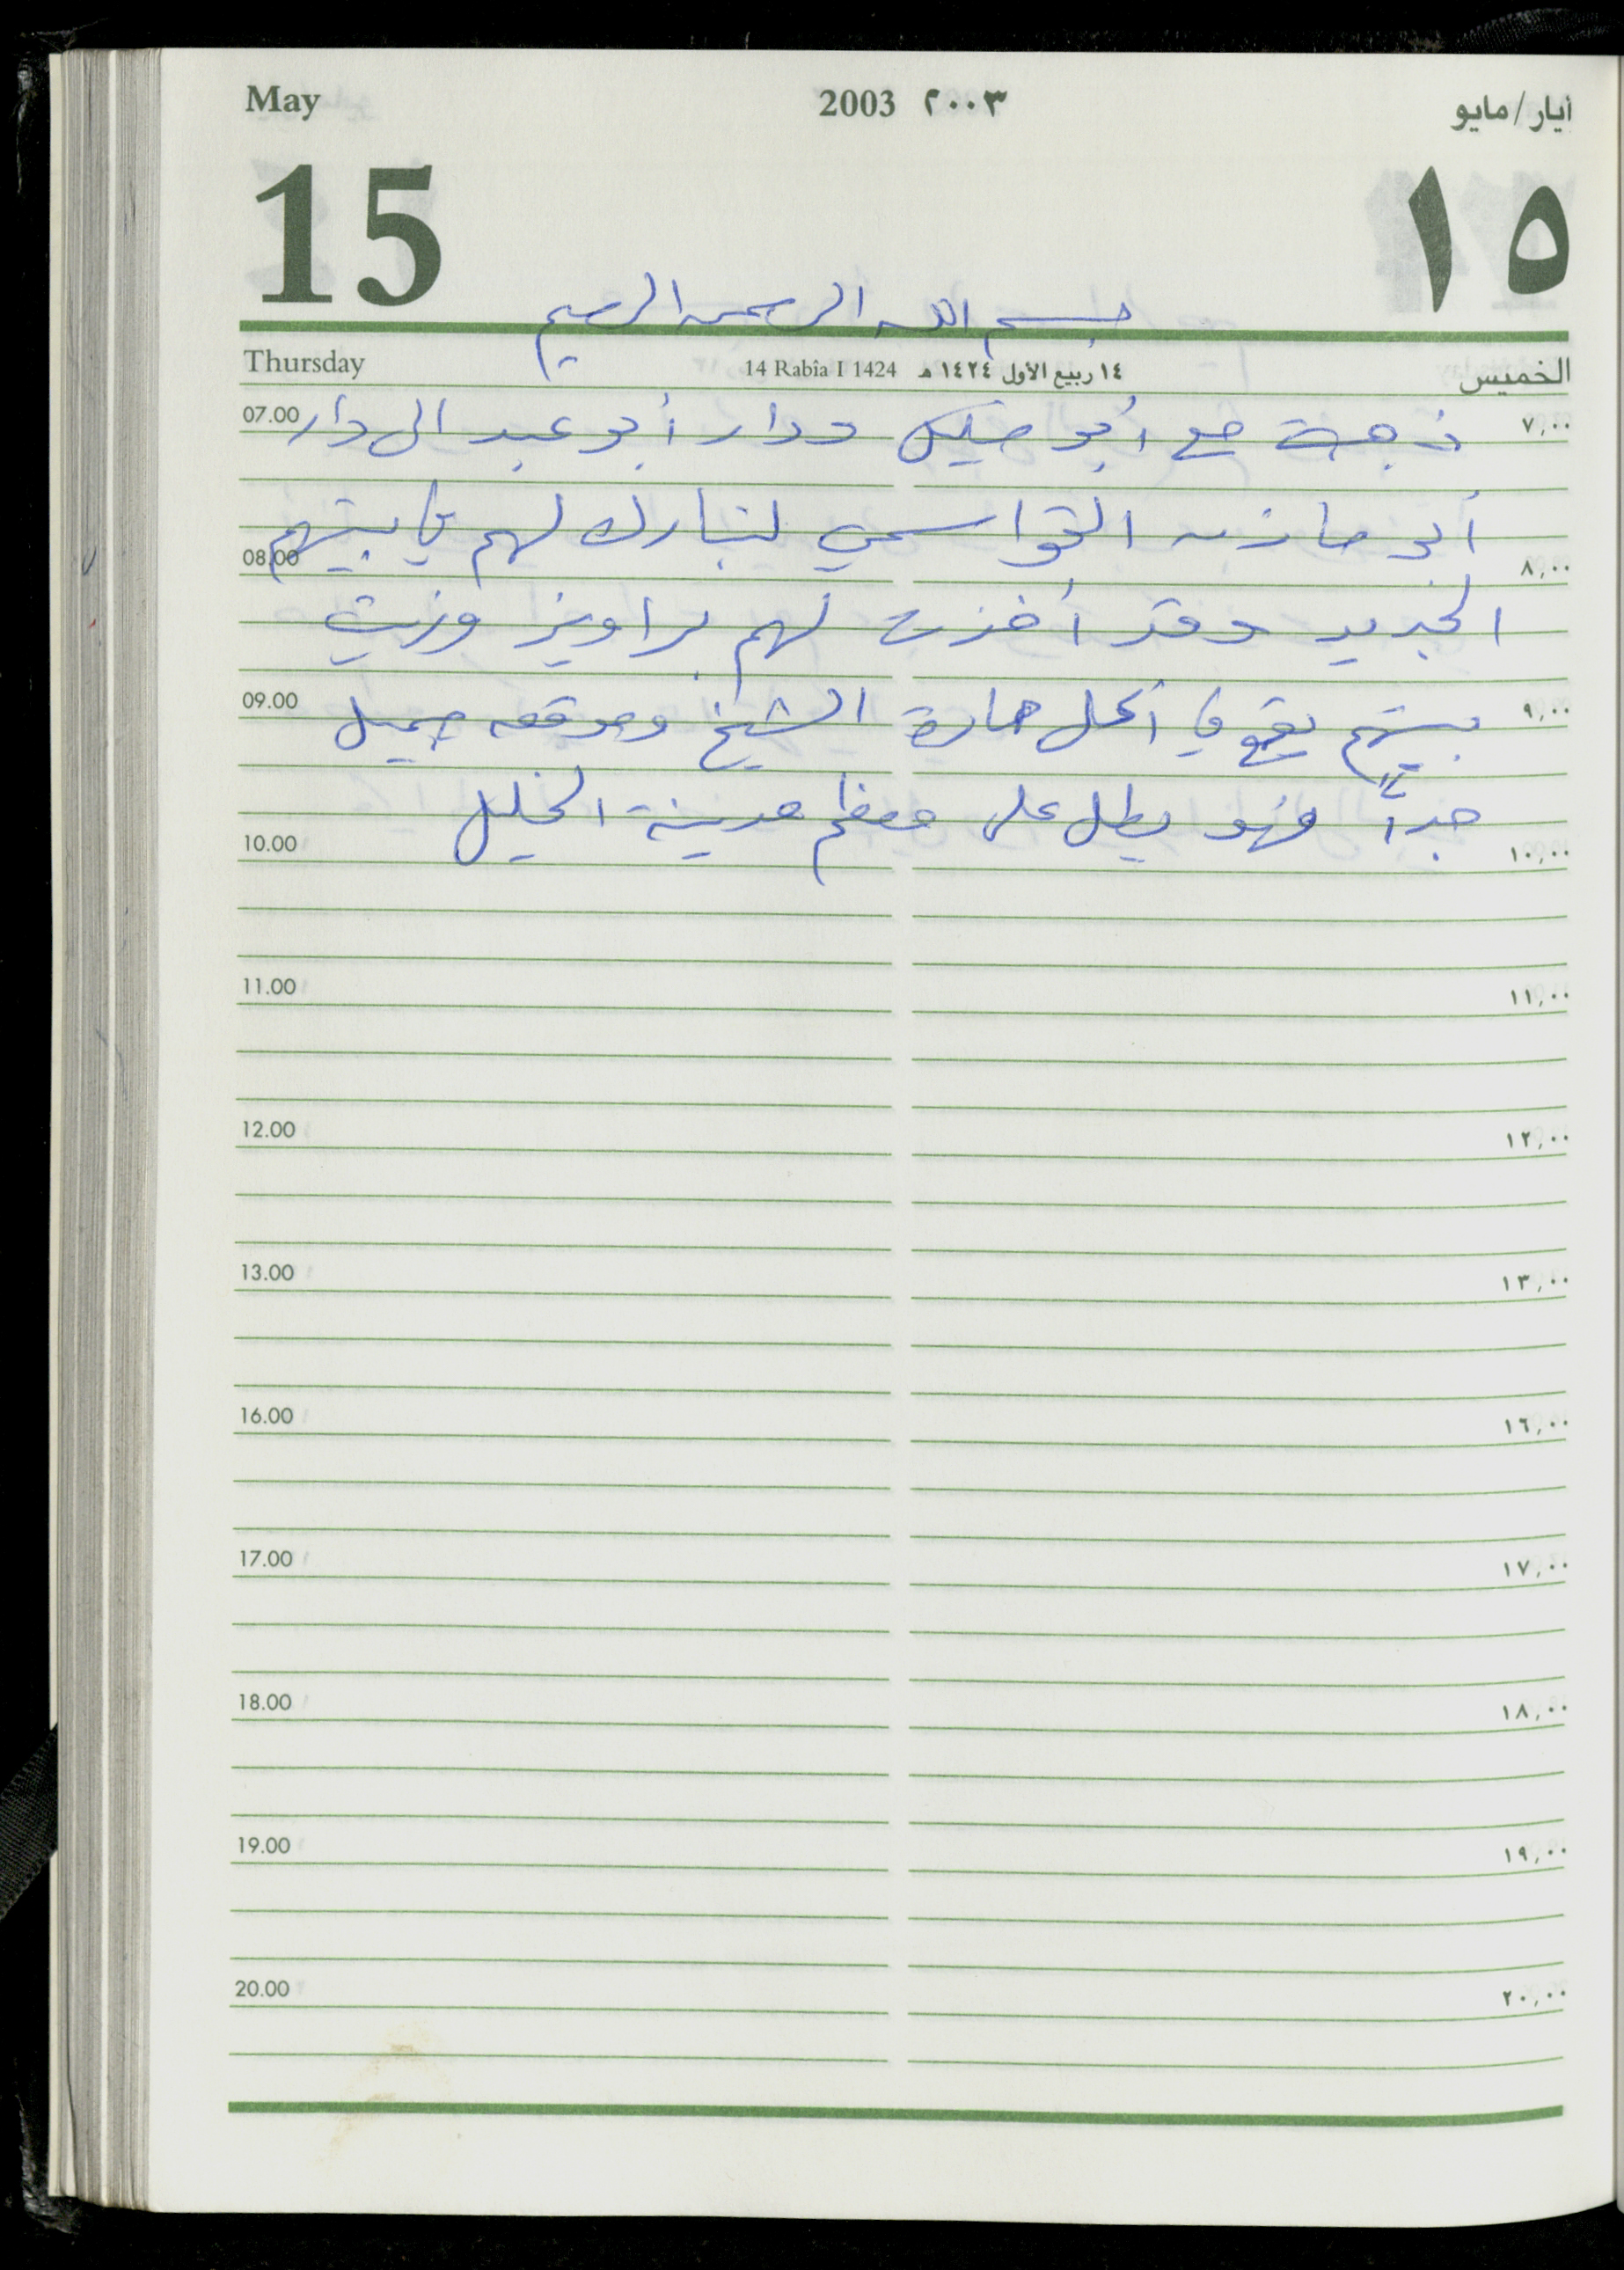 May 2003 ٢٠٠٣ أيار/مايو
15 ١٥
بسم الله الرحمن الرحيم
Thursday 14 Rabîa I 1424 ١٤ ربيع الأول ١٤٢٤ هـ الخميس
07.00 ذهبت مع أبو خليل ودار أبو عبد الى دار ٧,٠٠
أبو مازن القواسمي لنبارك لهم في بيتهم
08.00 ٨,٠٠
الجديد وقد أخذت لهم براويز وزيت
09.00 بيتهم يقع في حارة الشيخ وموقعه جميل ٩,٠٠
جداً فهو يطل على معظم مدينة الخليل
10.00 ١٠,٠٠
11.00 ١١,٠٠
12.00 ١٢,٠٠
13.00 ١٣,٠٠
16.00 ١٦,٠٠
17.00 ١٧,٠٠
18.00 ١٨,٠٠
19.00 ١٩,٠٠
20.00 ٢٠,٠٠